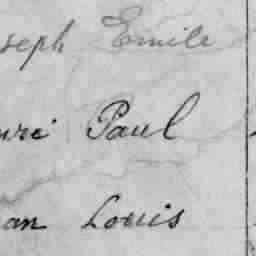 seph Emile
uri Paul
an Louis